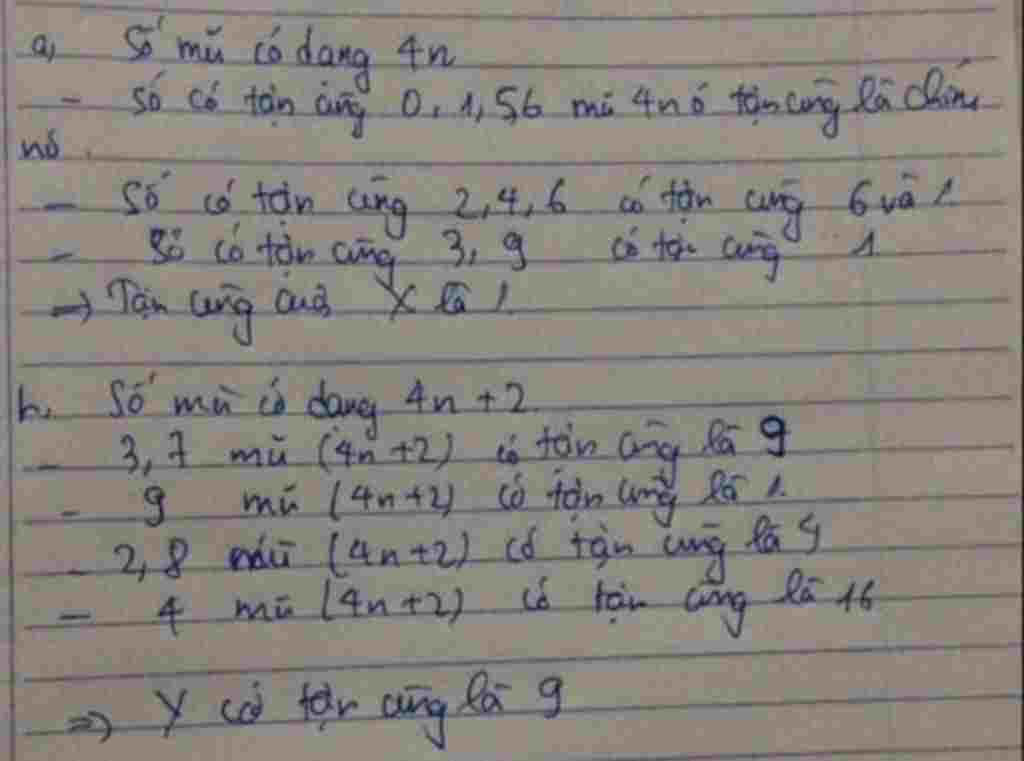 a, Số mũ có dạng 4n
- số có tận cùng 0, 1, 5, 6 mũ 4n có tận cùng là chính
nó.
- Số có tận cùng 2, 4, 6 có tận cùng 6 và 1
- Số có tận cùng 3, 9 có tận cùng 1
→ Tận cùng của X là 1
b. Số mũ có dạng 4n + 2
- 3, 7 mũ (4n+2) có tận cùng là 9
- 9 mũ (4n+2) có tận cùng là 1.
- 2, 8 mũ (4n+2) có tận cùng là 4
- 4 mũ (4n+2) có tận cùng là 16
=> Y có tận cùng là 9